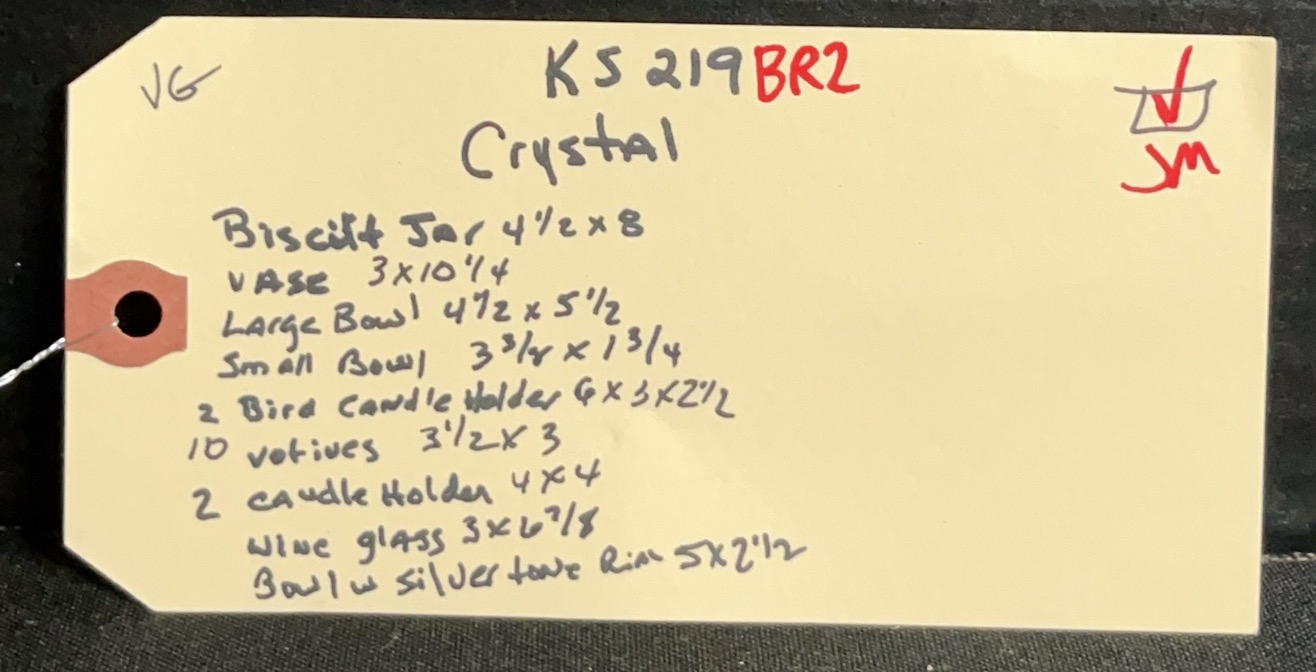 VG
KS 219 BR2
JM
Crystal
Biscuit Jar 4 1/2 x 8
VASE 3 x 10 1/4
Large Bowl 4 1/2 x 5 1/2
Small Bowl 3 3/8 x 1 3/4
2 Bird Candle Holder 6 x 3 x 2 1/2
10 votives 3 1/2 x 3
2 candle Holder 4 x 4
wine glass 3 x 6 7/8
Bowl w silver tone Rim 5 x 2 1/2